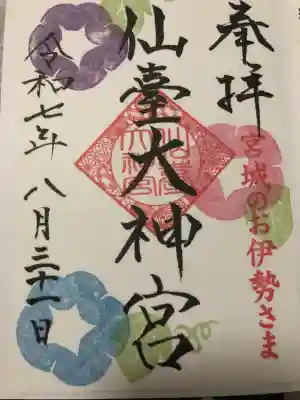 奉拝
宮城のお伊勢さま
仙臺大神宮
仙臺大神宮
令和七年八月三十一日